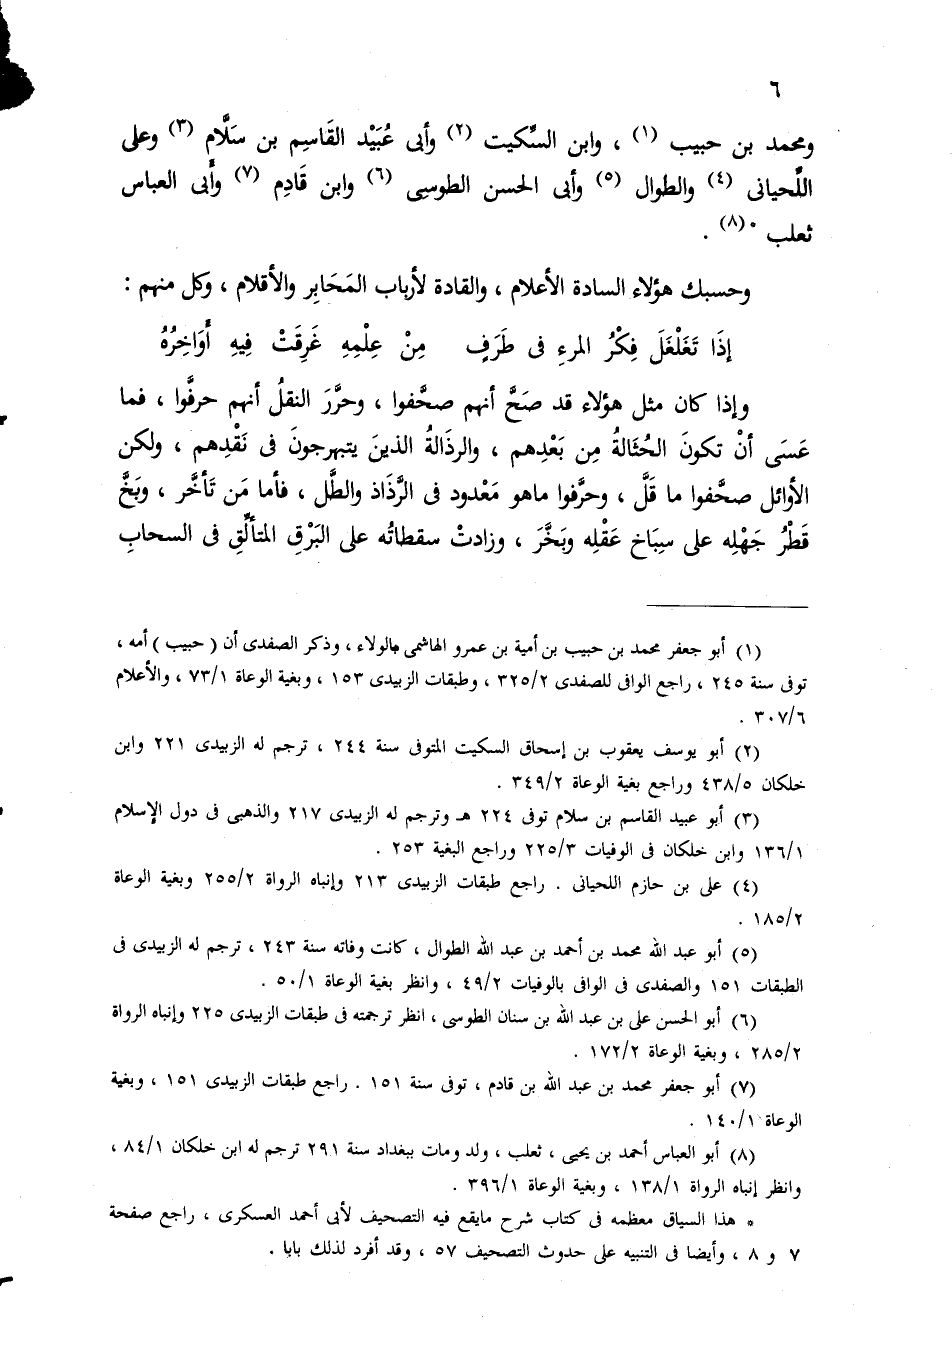 ٦
ومحمد بن حبيب (١) ، وابن السِّكيت (٢) وأبى عُبَيْد القَاسِم بن سَلَّام (٣) وعلى
اللَّحيانى (٤) والطوال (٥) وأبى الحسن الطوسِى (٦) وابن قَادِم (٧) وأَبى العباس
ثعلب *(٨) .
وحسبك هؤلاء السادة الأعلام ، والقادة لأرباب المَحَابِر والأقلام ، وكل منهم :
إذَا تَغَلْغَلَ فِكْرُ المرءِ فى طَرَفٍ مِنْ عِلْمِهِ غَرِقَتْ فِيهِ أَوَاخِرُهُ
وإذا كان مثل هؤلاء قد صَحَّ أنهم صحَّفوا ، وحرَّرَ النقلُ أنهم حرفَّوا ، فما
عَسَى أنْ تكونَ الحُثَالةُ مِن بَعْدِهم ، والرذَالةُ الذينَ يتبهرجونَ فى نَقْدِهم ، ولكن
الأوائل صحَّفوا ما قَلَّ ، وحرَّفوا ماهو مَعْدود فى الرَّذَاذ والطَّل ، فأما مَن تَأخَّر ، وبَخَّ
قَطْرُ جَهْلِه على سِبَاخ عَقْلِه وبَخَّرَ ، وزادتْ سقطاتُه على البَرْقِ المتألِّقِ فى السحابِ
(١) أبو جعفر محمد بن حبيب بن أمية بن عمرو الهاشمى بالولاء ، وذكر الصفدى أن ( حبيب ) أمه ،
توفى سنة ٢٤٥ ، راجع الوافى للصفدى ٣٢٥/٢ ، وطبقات الزبيدى ١٥٣ ، وبغية الوعاة ٧٣/١ ، والأعلام
٣٠٧/٦ .
(٢) أبو يوسف يعقوب بن إسحاق السكيت المتوفى سنة ٢٤٤ ، ترجم له الزبيدى ٢٢١ وابن
خلكان ٤٣٨/٥ وراجع بغية الوعاة ٣٤٩/٢ .
(٣) أبو عبيد القاسم بن سلام توفى ٢٢٤ هـ وترجم له الزبيدى ٢١٧ والذهبى فى دول الإسلام
١٣٦/١ وابن خلكان فى الوفيات ٢٢٥/٣ وراجع البغية ٢٥٣ .
(٤) على بن حازم اللحيانى . راجع طبقات الزبيدى ٢١٣ وإنباه الرواة ٢٥٥/٢ وبغية الوعاة
١٨٥/٢ .
(٥) أبو عبد الله محمد بن أحمد بن عبد الله الطوال ، كانت وفاته سنة ٢٤٣ ، ترجم له الزبيدى فى
الطبقات ١٥١ والصفدى فى الوافى بالوفيات ٤٩/٢ ، وانظر بغية الوعاة ٥٠/١ .
(٦) أبو الحسن على بن عبد الله بن سنان الطوسى ، انظر ترجمته فى طبقات الزبيدى ٢٢٥ وإنباه الرواة
٢٨٥/٢ ، وبغية الوعاة ١٧٢/٢ .
(٧) أبو جعفر محمد بن عبد الله بن قادم ، توفى سنة ١٥١ . راجع طبقات الزبيدى ١٥١ ، وبغية
الوعاة ١٤٠/١ .
(٨) أبو العباس أحمد بن يحيى ، ثعلب ، ولد ومات ببغداد سنة ٢٩١ ترجم له ابن خلكان ٨٤/١ ،
وانظر إنباه الرواة ١٣٨/١ ، وبغية الوعاة ٣٩٦/١ .
* هذا السياق معظمه فى كتاب شرح مايقع فيه التصحيف لأبى أحمد العسكرى ، راجع صفحة
٧ و ٨ ، وأيضا فى التنبيه على حدوث التصحيف ٥٧ ، وقد أفرد لذلك بابا .